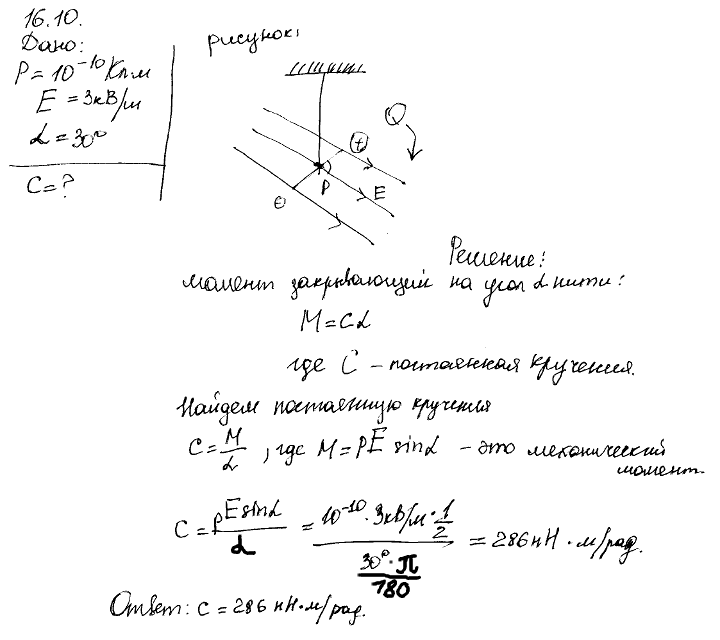 16.10.
Дано:
P = 10⁻¹⁰ Кл·м
E = 3кВ/м
α = 30°
C = ?
рисунок:
Q
⊕
P
E
⊖
Решение:
момент закрывающий на угол α нити:
M = Cα
где C – постоянная кручения.
Найдем постоянную кручения
C = M/α, где M = PE sinα – это механический
момент
C = pE sinα / α = (10⁻¹⁰ · 3кВ/м · 1/2) / (30° · π / 180) = 286 нН · м/рад.
Ответ: C = 286 нН · м/рад.